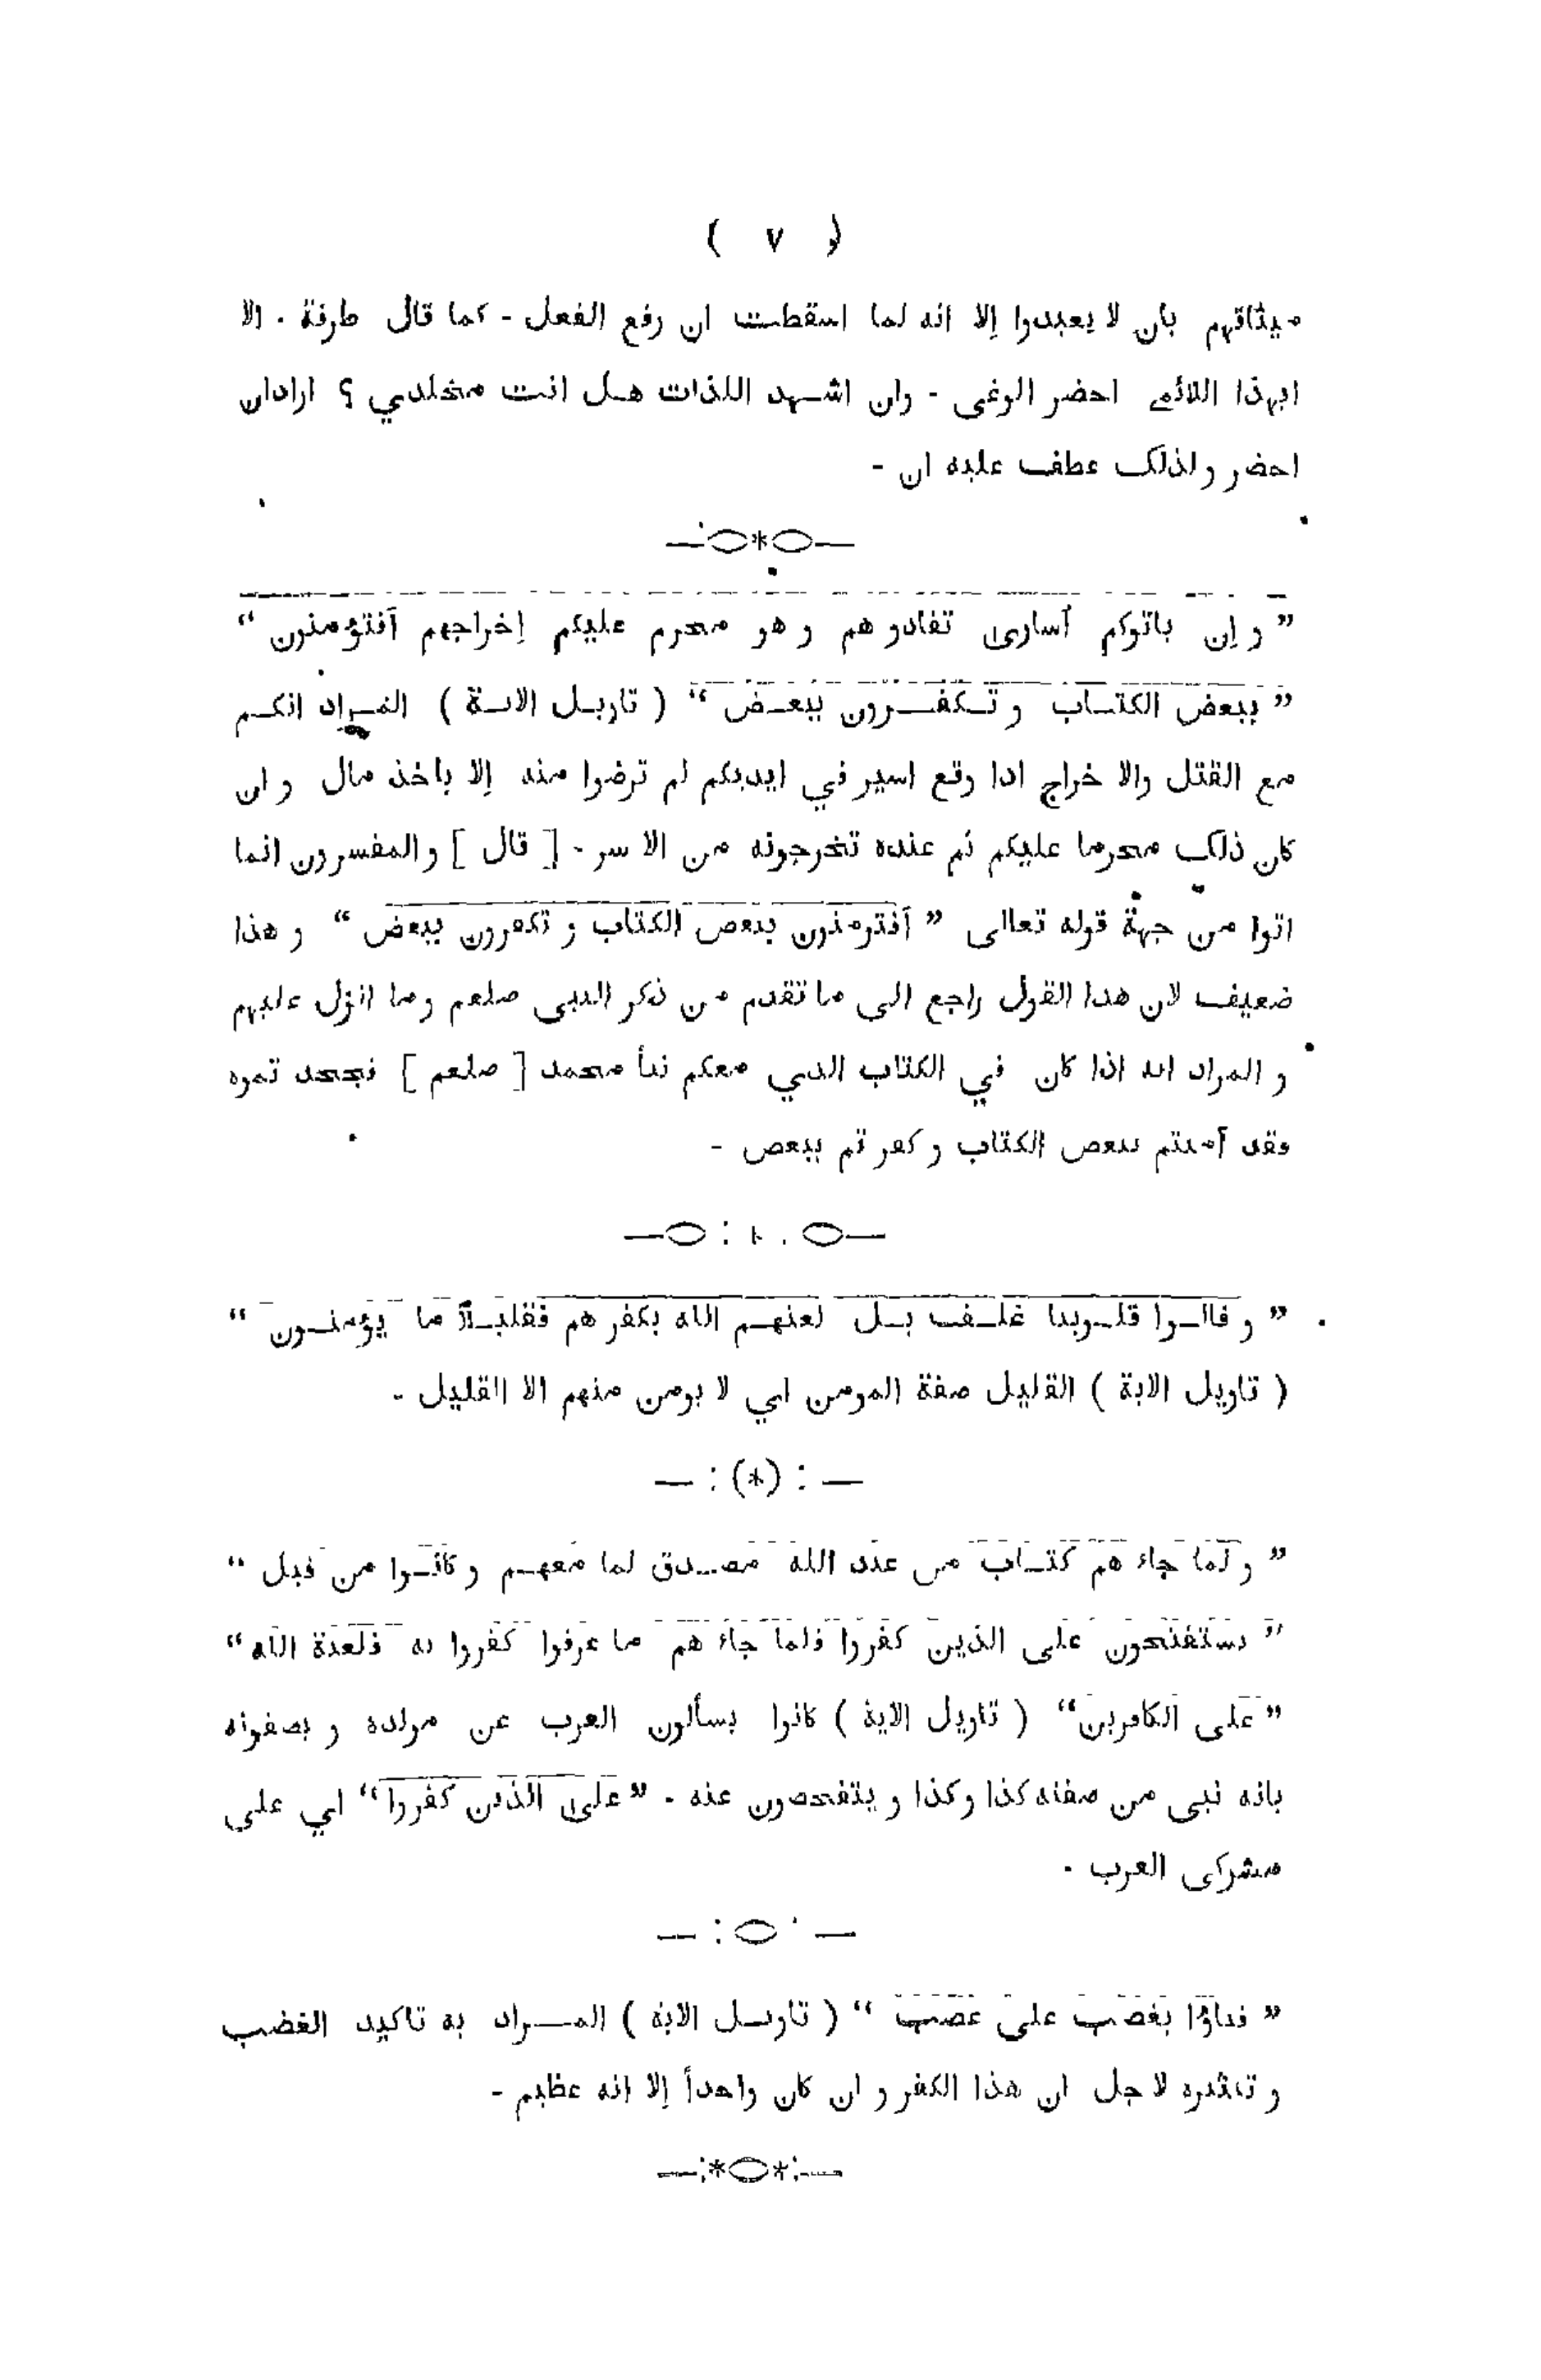 ( ٧ )
ميثاقهم بأن لا يعبدوا إلا انه لما اسقطت ان رفع الفعل - كما قال طرفة . الا
ايهذا اللائمى احضر الوغى - وان اشهد اللذات هل انت مخلدي ؟ ارادان
احضر ولذلك عطف عليه ان -
” و إن ياتوكم أسارى تفادوهم و هو محرم عليكم إخراجهم أفتؤمنون “
” ببعض الكتاب و تكفرون ببعض “ ( تاويل الاية ) المراد انكم
مع القتل والا خراج اذا وقع اسير في ايديكم لم ترضوا منه إلا باخذ مال و ان
كان ذلك محرما عليكم ثم عنده تخرجونه من الا سر - [ قال ] والمفسرون انما
اتوا من جهة قوله تعالى ” أفتومنون ببعض الكتاب و تكفرون ببعض “ و هذا
ضعيف لان هذا القول راجع الى ما تقدم من ذكر النبى صلعم وما انزل عليهم
و المراد انه اذا كان في الكتاب الذي معكم نبأ محمد [ صلعم ] فبجحد تموه
فقد آمنتم ببعض الكتاب و كفر تم ببعض -
” و قالوا قلوبنا غلف بل لعنهم الله بكفر هم فقليلاً ما يؤمنون “
( تاويل الاية ) القليل صفة المومن اي لا يومن منهم الا القليل -
” و لما جاء هم كتاب من عند الله مصدق لما معهم و كانوا من قبل “
” يستفتحون على الذين كفروا فلما جاء هم ما عرفوا كفروا به فلعنة الله “
” على الكافرين “ ( تاويل الاية ) كانوا يسألون العرب عن مولده و يصفونه
بانه نبى من صفته كذا وكذا و يتفحصون عنه - ” على الذين كفروا “ اي على
مشركى العرب -
” فباؤا بغضب على غضب “ ( تاويل الاية ) المراد به تاكيد الغضب
و تكثيره لا جل ان هذا الكفر و ان كان واحداً إلا انه عظيم -